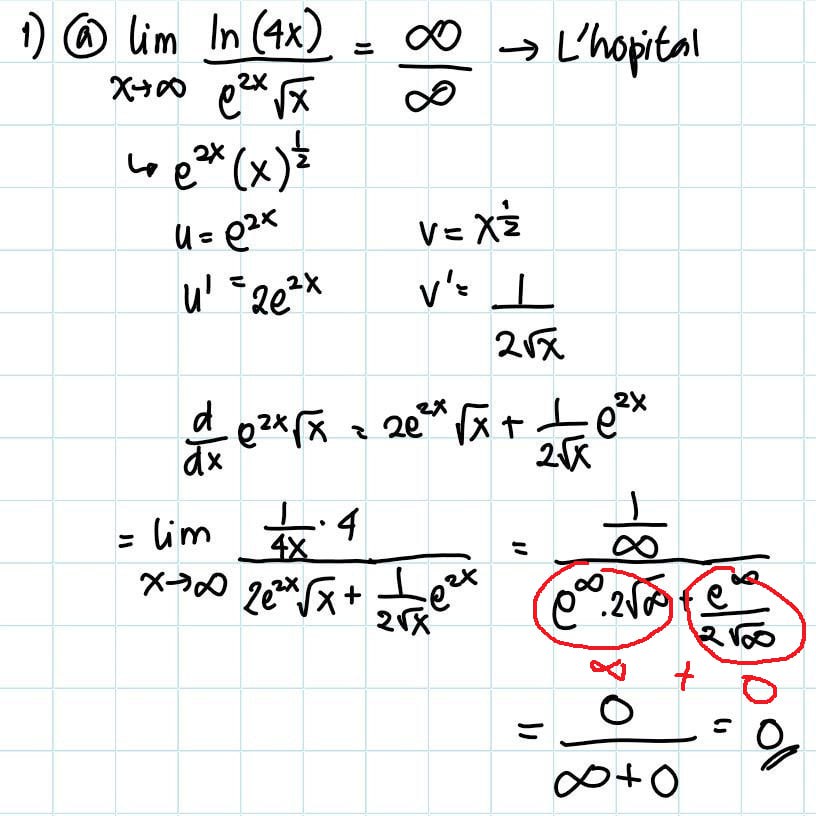 1) ⓐ lim x→∞ ln(4x) / e^{2x}√x = ∞/∞ → L'hopital
↳ e^{2x}(x)^{1/2}
u = e^{2x} v = x^{1/2}
u' = 2e^{2x} v' = 1/2√x
d/dx e^{2x}√x = 2e^{2x}√x + 1/2√x e^{2x}
= lim x→∞ (1/4x · 4) / (2e^{2x}√x + 1/2√x e^{2x}) = (1/∞) / (e^∞.2√∞ + e^∞/2√∞)
∞ + 0
= 0 / ∞+0 = 0